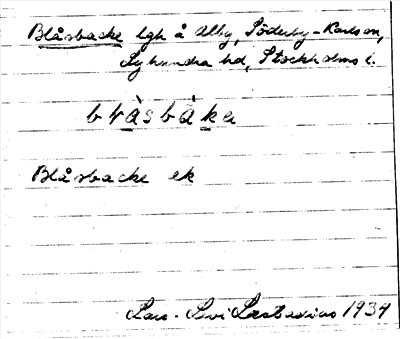 Blåsbacke lgh å Alby, Söderby-Karlsson,
Lyhundra hd, Stockholms l.
Blåsbacke ek
Lars-Levi Læstadius 1934